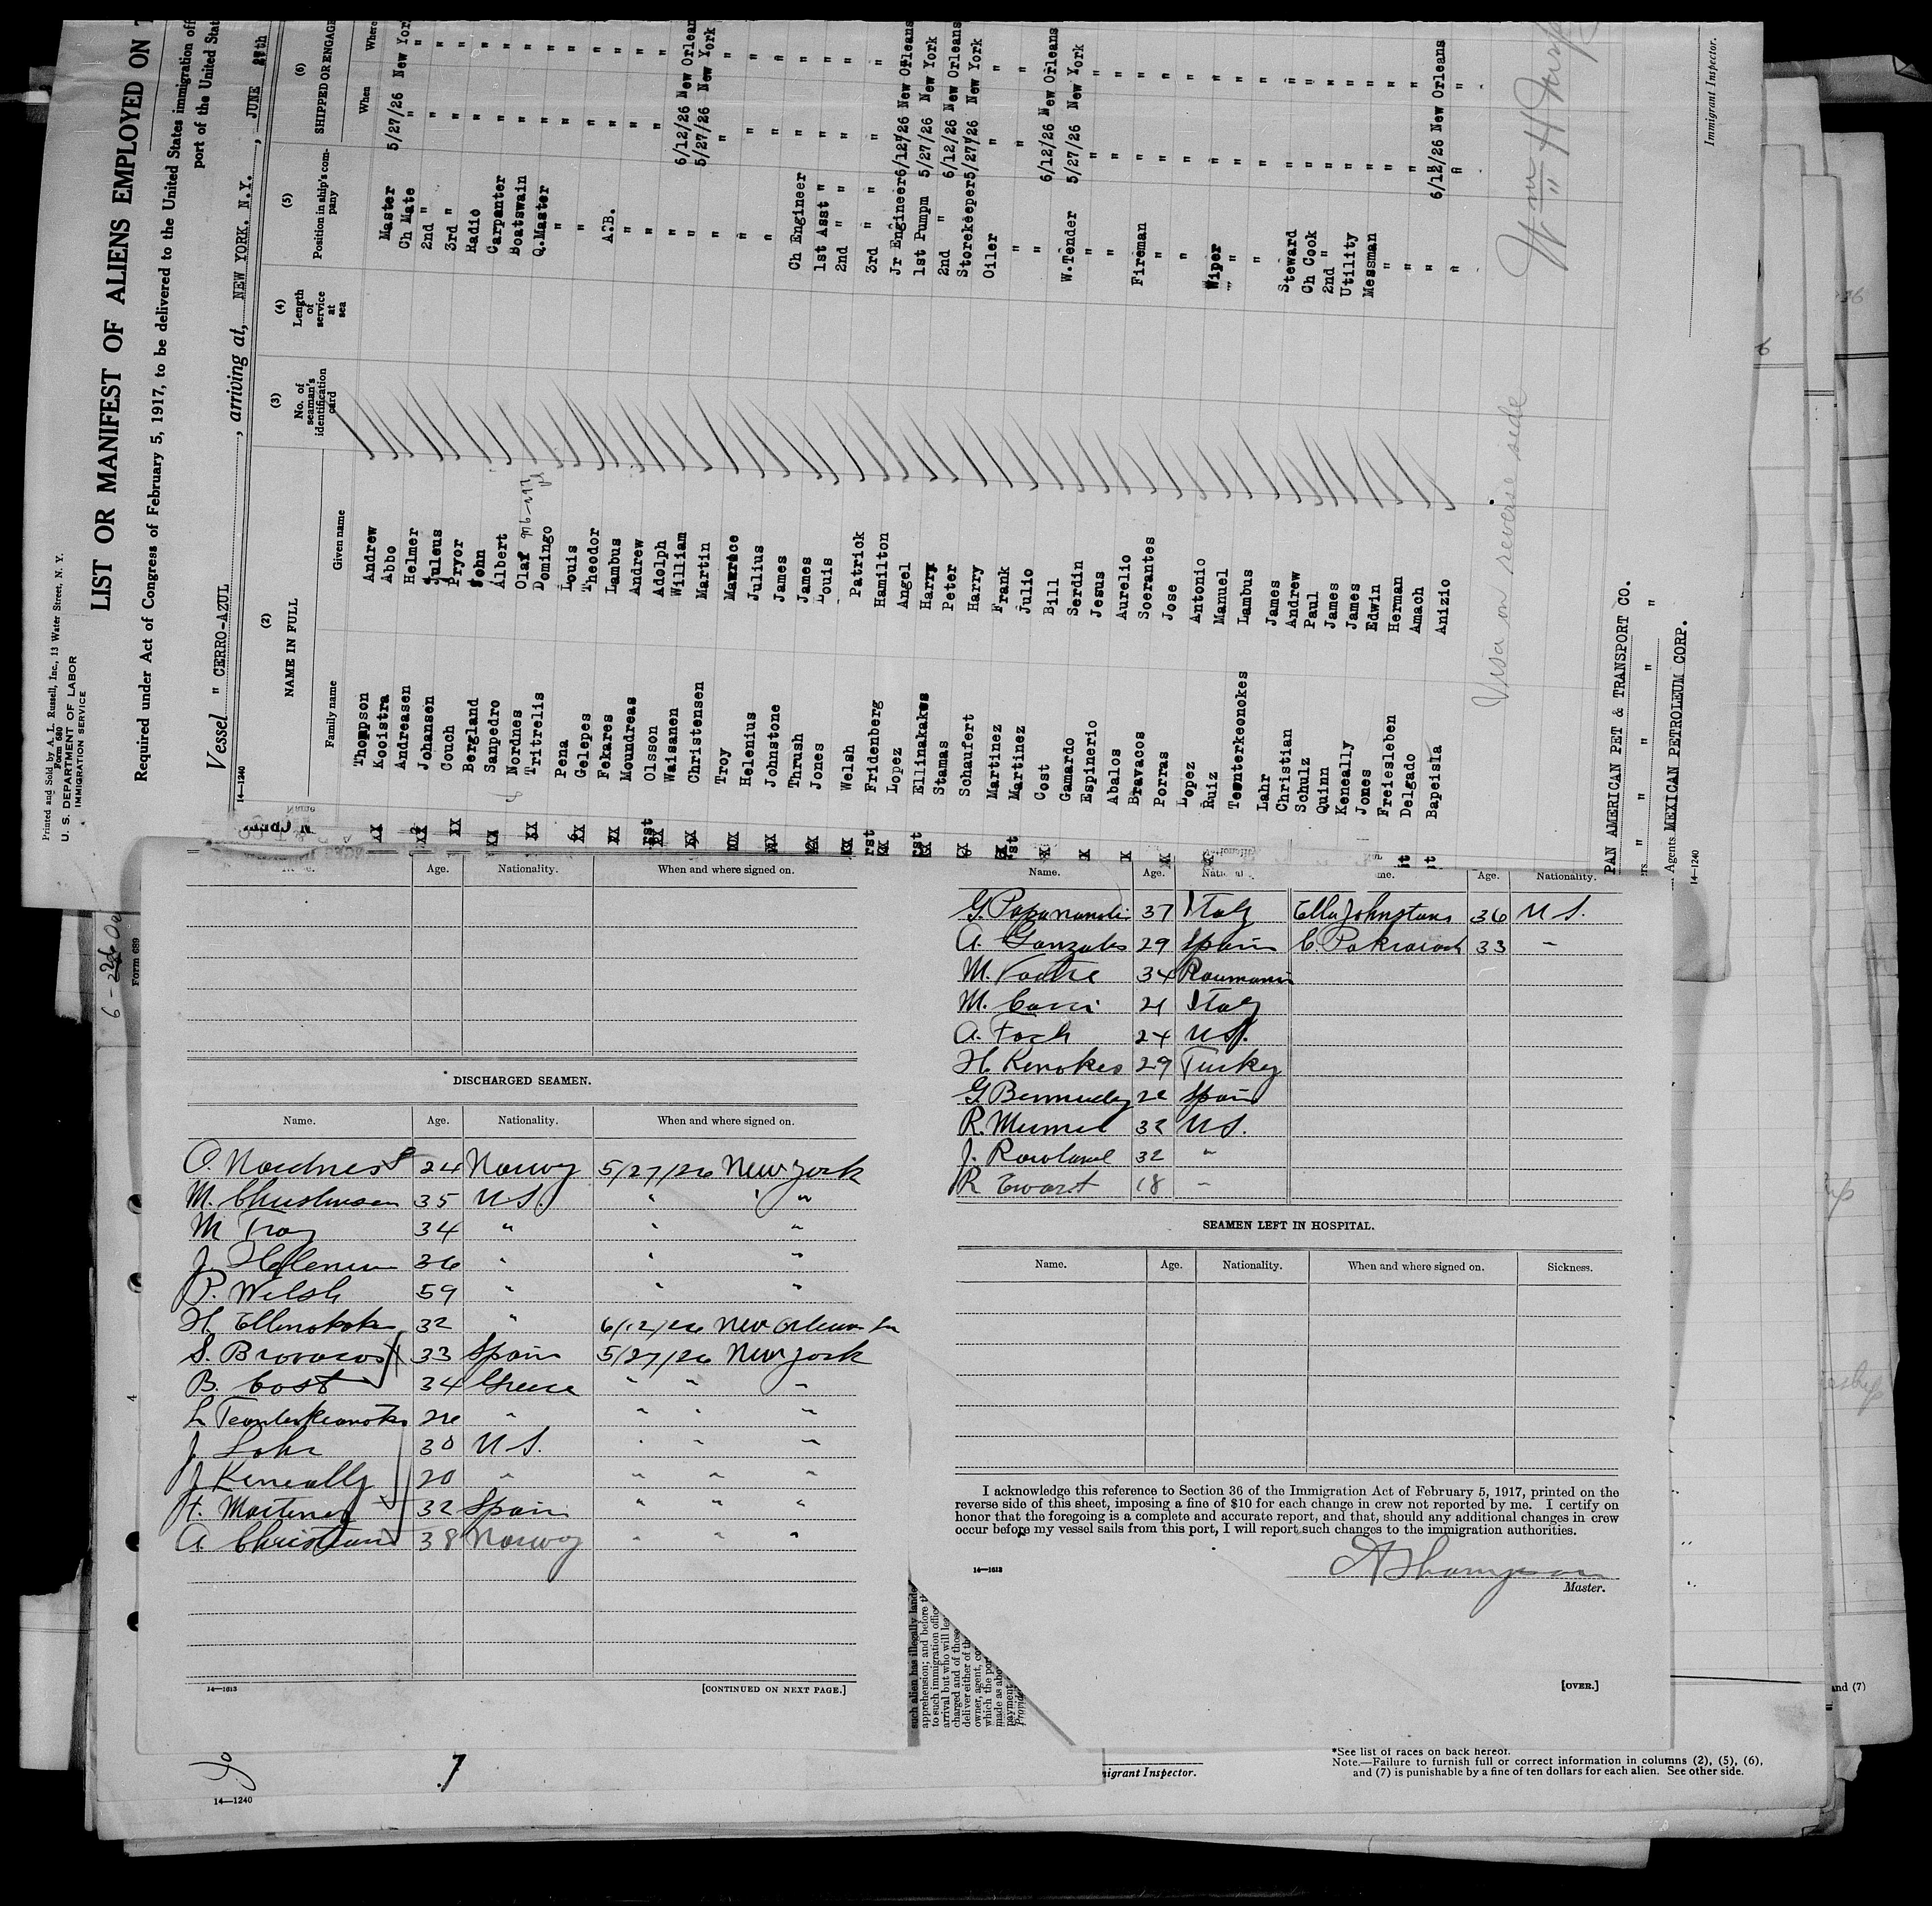 Printed and Sold by A. L. Russell, Inc., 13 Water Street, N. Y.
Form 680
U. S. DEPARTMENT OF LABOR
IMMIGRATION SERVICE
LIST OR MANIFEST OF ALIENS EMPLOYED ON
Required under Act of Congress of February 5, 1917, to be delivered to the United States immigration
port of the United
Vessel " CERRO-AZUL , arriving at, NEW YORK. N.Y. , JUNE 27th
14—1240
(2) (3) (4) (5) (6)
NAME IN FULL No. of seaman's identification card Length of service at sea Position in ship's company SHIPPED OR ENGAGED
Family name Given name When Where
Thompson Andrew Master 5/27/26 New York
Kooistra Abbo Ch Mate " "
Andreasen Helmer 2nd " " "
Johansen Juleus 3rd " " "
Couch Pryor Radio " "
Bergland John Carpenter " "
Sanpedro Albert Boatswain " "
Nordnes Olaf Q.Master " "
Tritrelis Domingo " " "
Pena Louis " " "
Gelepes Theodor A.B. " "
Fekares Lambus " " "
Moundreas Andrew " " "
Olsson Adolph " " "
Waisanen William " 6/12/26 New Orleans
Christensen Martin " 5/27/26 New York
Troy Maurice " " "
Helenius Julius " " "
Johnstone James Ch Engineer " "
Thrush James 1st Asst " " "
Jones Louis 2nd " " " "
Welsh Patrick 3rd " " " "
Fridenberg Hamilton Jr Engineer 6/12/26 New Orleans
Lopez Angel 1st Pumpm 5/27/26 New York
Ellinakakes Harry 2nd " 6/12/26 New Orleans
Stamas Peter Storekeeper 5/27/26 New York
Schaufert Harry Oiler " "
Martinez Frank " " "
Martinez Julio " 6/12/26 New Orleans
Cost Bill W.Tender 5/27/26 New York
Gamardo Serdin " " "
Espinerio Jesus " " "
Abalos Aurelio Fireman " "
Bravacos Socrantes " " "
Porras Jose " " "
Lopez Antonio Wiper " "
Ruiz Manuel " " "
Teonterkeonokes Lambus " " "
Lahr James Steward " "
Christian Andrew Ch Cook " "
Schulz Paul 2nd " " "
Quinn James Utility " "
Keneally James Messman " "
Jones Edwin " " "
Freiesleben Herman " " "
Delgado Amach " 6/12/26 New Orleans
Bapeista Anizio " " "
Visa on reverse side
PAN AMERICAN PET & TRANSPORT CO.
Agents MEXICAN PETROLEUM CORP.
14—1240
Immigrant Inspector.
Form 689
Age. Nationality. When and where signed on.
DISCHARGED SEAMEN.
Name. Age. Nationality. When and where signed on.
O. Nordness 24 Norwy 5/27/26 New York
M. Christensen 35 U.S. " " "
M Troy 34 " " "
J. Helenius 36 " " "
P. Welsh 59 " " "
H. Ellenokakes 32 " 6/12/26 New Orleans La
S. Brovacos 33 Spain 5/27/26 New York
B. Cost 34 Greece " " "
L Teonterkeonokes 26 " " " "
J. Lohr 30 U.S. " " "
J Keneally 20 " " " "
F. Martenez 32 Spain " " "
A Christian 38 Norwy " " "
14—1613
[CONTINUED ON NEXT PAGE.]
Name. Age. Age. Nationality.
37 Italy Ella Johnstone 36 U S.
A. Gonzales 29 Spain 33 "
M. 34 Roumania
M. 21 Italy
A. Foch 24 U.S.
H. Kenokes 29 Turkey
G Bermudez 22 Spain
R. 32 U.S.
J. Rowland 32 "
R Ewart 18 "
SEAMEN LEFT IN HOSPITAL.
Name. Age. Nationality. When and where signed on. Sickness.
I acknowledge this reference to Section 36 of the Immigration Act of February 5, 1917, printed on the
reverse side of this sheet, imposing a fine of $10 for each change in crew not reported by me. I certify on
honor that the foregoing is a complete and accurate report, and that, should any additional changes in crew
occur before my vessel sails from this port, I will report such changes to the immigration authorities.
14—1613
A Thompson
Master.
[OVER.]
such alien has illegally
apprehension; and before
to such immigration
arrival but who will
charged and of those
deliver either of
owner, agent,
which the
made as
payment
and (7)
7
Inspector.
*See list of races on back hereof.
Note.—Failure to furnish full or correct information in columns (2), (5), (6),
and (7) is punishable by a fine of ten dollars for each alien. See other side.
14—1240